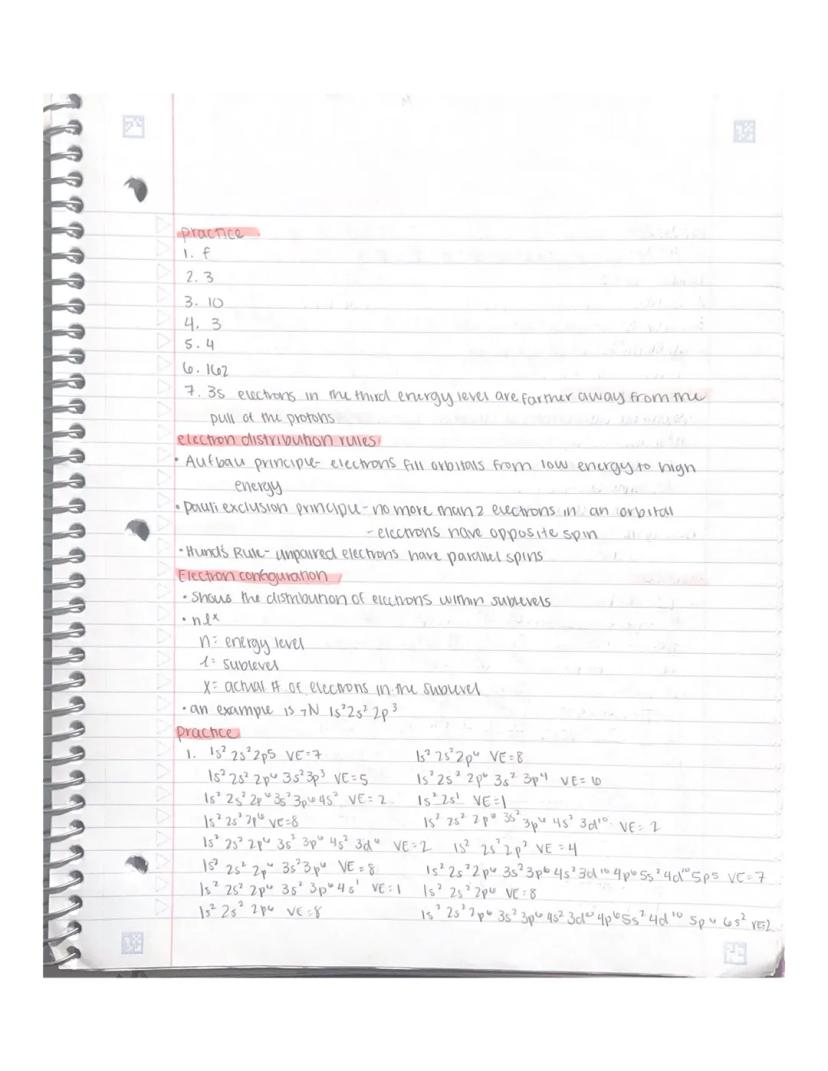 practice
1. f
2. 3
3. 10
4. 3
5. 4
6. 162
7. 3s electrons in the third energy level are farther away from the
pull of the protons
electron distribution rules
• Aufbau principle- electrons fill orbitals from low energy to high
energy
• Pauli exclusion principle - no more than 2 electrons in an orbital
- electrons have opposite spin
• Hund's Rule- unpaired electrons have parallel spins
Electron configuration
• Shows the distribution of electrons within sublevels
• nlˣ
n= energy level
l= sublevel
x= actual # of electrons in the sublevel
• an example is ₇N 1s²2s²2p³
Practice
1. 1s² 2s² 2p5 VE=7 1s² 2s² 2p⁶ VE=8
1s² 2s² 2p⁶ 3s² 3p³ VE=5 1s² 2s² 2p⁶ 3s² 3p⁴ VE=6
1s² 2s² 2p⁶ 3s² 3p⁶ 4s² VE=2 1s² 2s¹ VE=1
1s² 2s² 2p⁶ VE=8 1s² 2s² 2p⁶ 3s² 3p⁶ 4s² 3d¹⁰ VE=2
1s² 2s² 2p⁶ 3s² 3p⁶ 4s² 3d⁶ VE=2 1s² 2s² 2p² VE=4
1s² 2s² 2p⁶ 3s² 3p⁶ VE=8 1s² 2s² 2p⁶ 3s² 3p⁶ 4s² 3d¹⁰ 4p⁶ 5s² 4d¹⁰ 5p5 VE=7
1s² 2s² 2p⁶ 3s² 3p⁶ 4s¹ VE=1 1s² 2s² 2p⁶ VE=8
1s² 2s² 2p⁶ VE=8 1s² 2s² 2p⁶ 3s² 3p⁶ 4s² 3d¹⁰ 4p⁶ 5s² 4d¹⁰ 5p⁶ 6s² VE=2